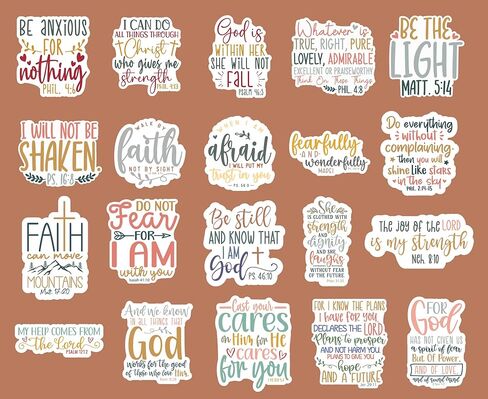 BE ANXIOUS
FOR
nothing
PHIL. 4:6
I CAN DO
ALL THINGS THROUGH
Christ
who gives me
strength
PHIL. 4:13
God is
WITHIN HER
SHE WILL NOT
FALL
PSALM 46:5
Whatever is
TRUE, RIGHT, PURE
LOVELY, ADMIRABLE
EXCELLENT OR PRAISEWORTHY
Think On These Things
PHIL. 4:8
BE THE
LIGHT
MATT. 5:14
I WILL NOT BE
SHAKEN
PS. 16:8
WALK BY
faith
NOT BY SIGHT
WHEN I AM
afraid
I WILL PUT MY
trust in you
PS. 56:3
fearfully
AND
wonderfully
MADE
Do everything
without
complaining
then you will
shine like stars
in the sky
PHIL. 2:14-15
FAITH
can move
MOUNTAINS
Matt. 17:20
DO NOT
Fear
FOR
I AM
with you
Isaiah 41:10
Be still
AND KNOW THAT
I AM
God
PS. 46:10
She
IS CLOTHED WITH
strength
AND
dignity
AND SHE
laughs
WITHOUT FEAR
OF THE FUTURE
THE JOY OF THE LORD
is my strength
Neh. 8:10
MY HELP COMES FROM
The Lord
PSALM 121:2
And we know
IN ALL THINGS THAT
God
works for the good
of those who love Him
Cast your
cares
on Him FOR He
cares
for you
FOR I KNOW THE PLANS
I have FOR YOU
DECLARES THE LORD
Plans to prosper
AND NOT HARM YOU
PLANS TO GIVE YOU
hope
AND A FUTURE
FOR
God
HAS NOT GIVEN US
a spirit of fear
But Of Power,
AND OF LOVE,
and of sound mind